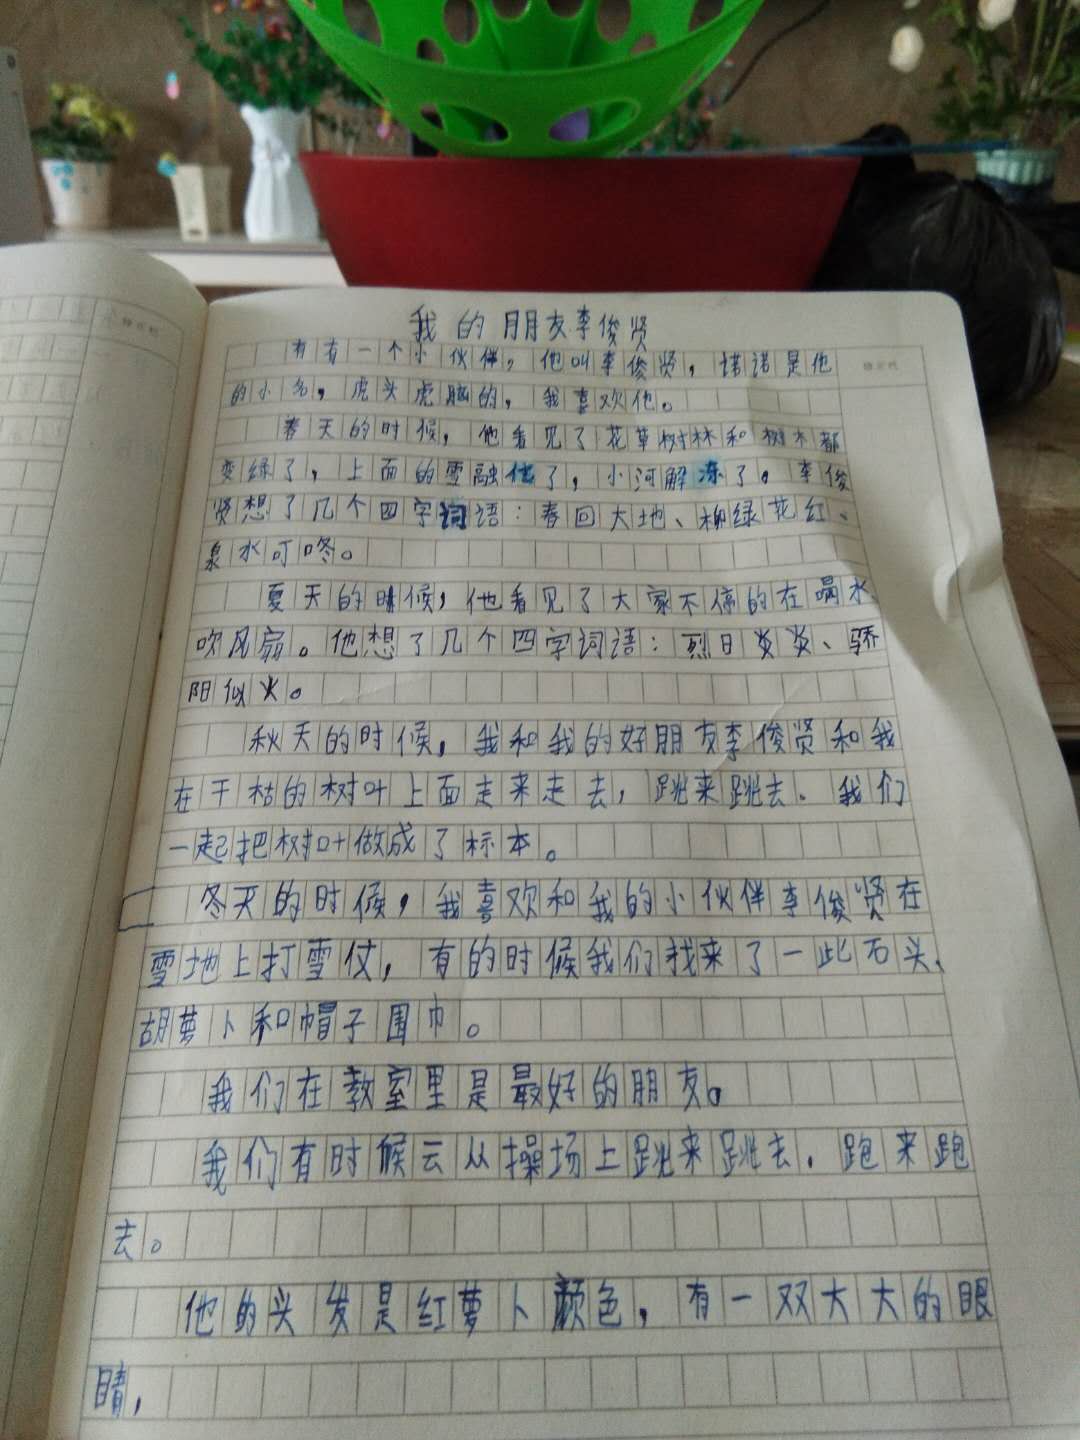 我的朋友李俊贤
有有一个小伙伴，他叫李俊贤，诺诺是他
的小名，虎头虎脑的，我喜欢他。
春天的时候，他看见了花草树林和树木都
变绿了，上面的雪融化了，小河解冻了。李俊
贤想了几个四字词语：春回大地、柳绿花红、
泉水叮咚。
夏天的时候，他看见了大家不停的在喝水
吹风扇。他想了几个四字词语：烈日炎炎、骄
阳似火。
秋天的时候，我和我的好朋友李俊贤和我
在干枯的树叶上面走来走去，跳来跳去。我们
一起把树叶做成了标本。
冬天的时候，我喜欢和我的小伙伴李俊贤在
雪地上打雪仗，有的时候我们找来了一此石头、
胡萝卜和帽子围巾。
我们在教室里是最好的朋友。
我们有时候云从操场上跳来跳去，跑来跑
去。
他的头发是红萝卜颜色，有一双大大的眼
睛，